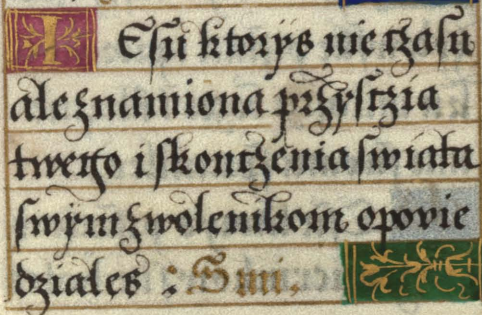 IEsu ktorys nie tzasu
ale znamiona przystzia
twetgo i skontzenia swiata
swym zwolenikom opovie
dziales : Smi.